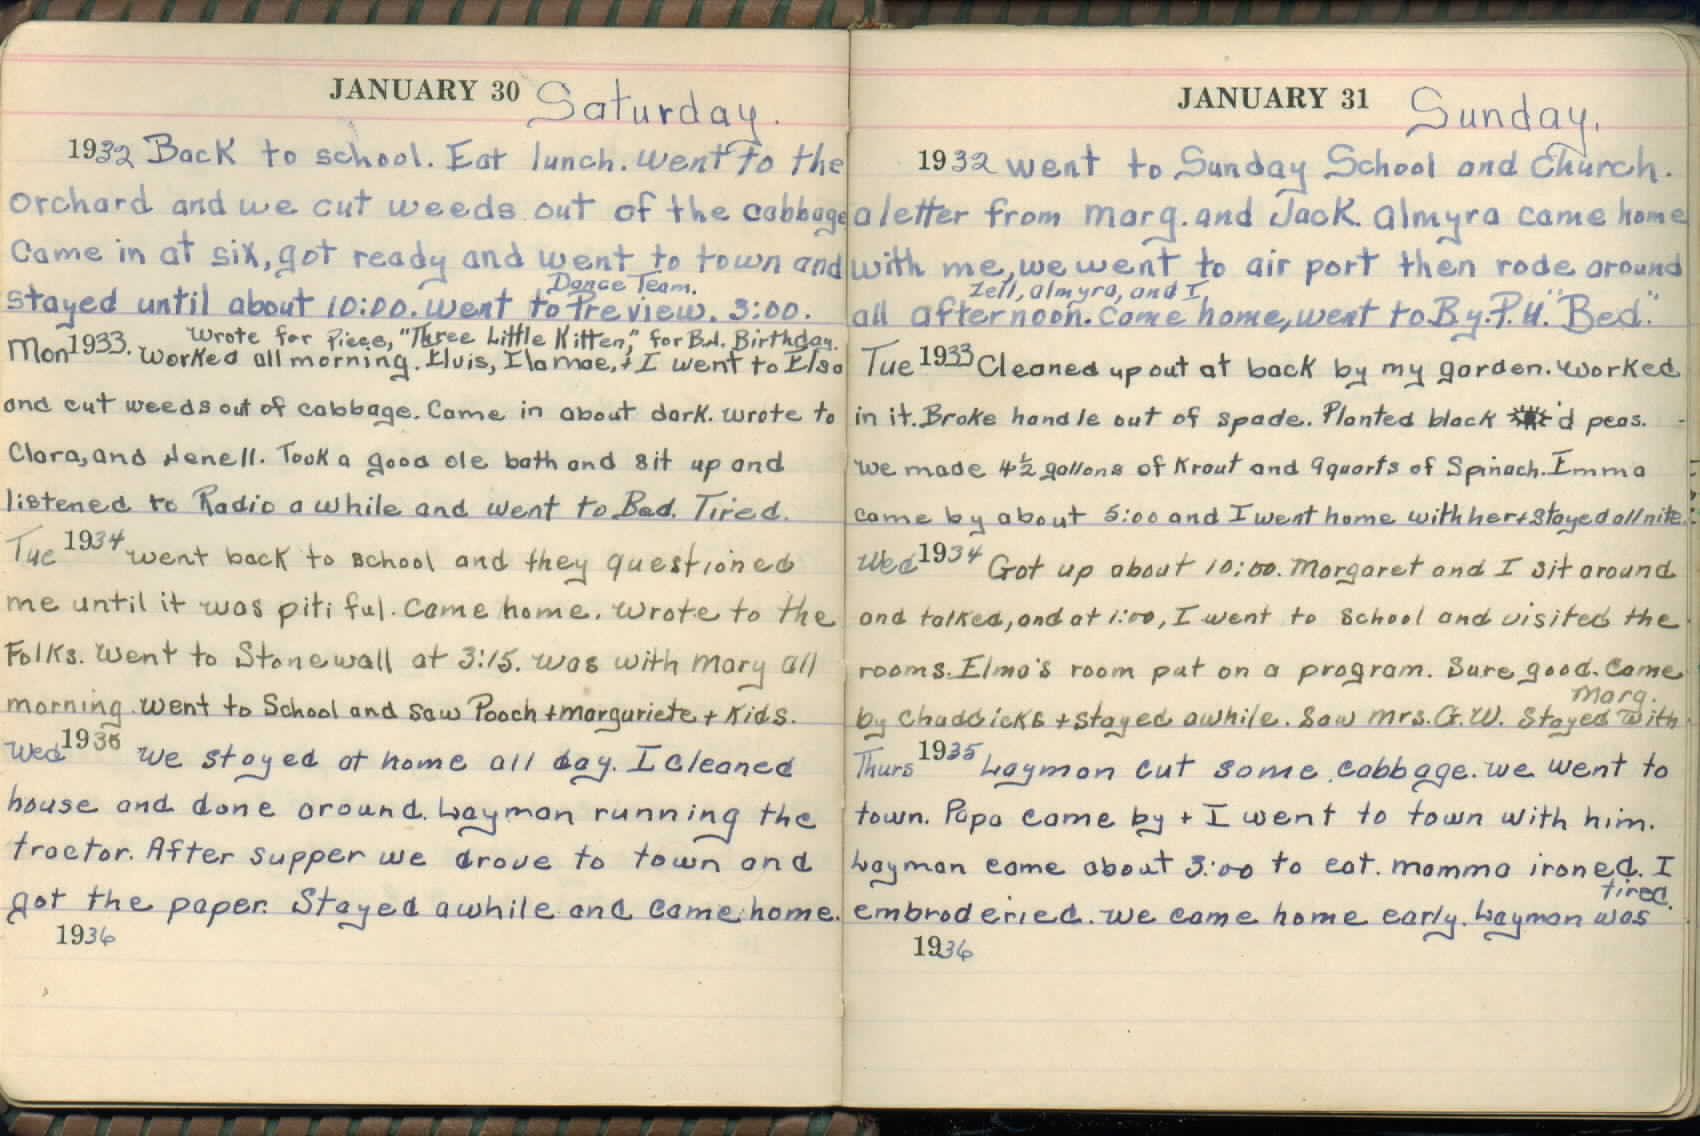 JANUARY 30 Saturday.
1932 Back to school. Eat lunch. went to the
orchard and we cut weeds out of the cabbage
Came in at six, got ready and went to town and
Dance Team.
stayed until about 10:00. went to Preview. 3:00.
wrote for Piece, "Three Little Kitten," for B.d. Birthday.
Mon 1933. worked all morning. Elvis, Ila mae, + I went to Elsa
and cut weeds out of cabbage. Came in about dark. wrote to
Clara, and Nenell. Took a good ole bath and sit up and
listened to Radio a while and went to Bed. Tired.
Tue 1934 went back to school and they questioned
me until it was piti ful. Came home. wrote to the
Folks. went to Stonewall at 3:15. was with mary all
morning. went to School and saw Pooch + marguriete + kids.
Wed 1935 we stayed at home all day. I cleaned
house and done around. Layman running the
tractor. After supper we drove to town and
got the paper. Stayed awhile and came home.
1936
JANUARY 31 Sunday.
1932 went to Sunday School and Church.
a letter from marg. and Jack. almyra came home
with me, we went to air port then rode around
Zell, almyra, and I
all afternoon. Came home, went to B.y.P.U. "Bed."
Tue 1933 Cleaned up out at back by my garden. worked
in it. Broke handle out of spade. Planted black 'd peas.
we made 4½ gallons of Krout and 9 quarts of Spinach. Emma
came by about 5:00 and I went home with her + stayed all nite.
Wed 1934 Got up about 10:00. Margaret and I sit around
and talked, and at 1:00, I went to School and visited the
rooms. Elma's room put on a program. Sure good. Came
marg.
by Chaddicks + stayed awhile. Saw mrs. G.W. Stayed with
Thurs 1935 Layman cut some cabbage. we went to
town. Papa came by + I went to town with him.
Layman came about 3:00 to eat. mamma ironed. I
tired.
embroderied. we came home early. Layman was
1936